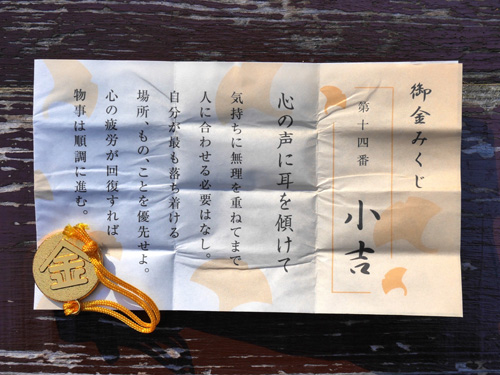 御金みくじ
第十四番
小吉
心の声に耳を傾けて
気持ちに無理を重ねてまで
人に合わせる必要はなし。
自分が最も落ち着ける
場所、もの、ことを優先せよ。
心の疲労が回復すれば
物事は順調に進む。
金